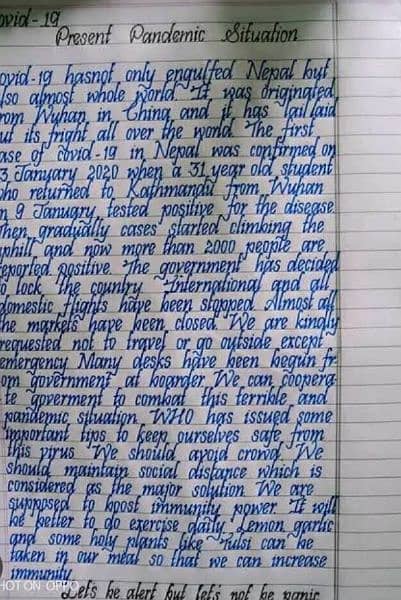 ovid-19
Present Pandemic Situation
ovid-19 hasnot only engulfed Nepal but
lso almost whole world. It was originated
rom Wuhan in China and it has laillaid
ut its fright all over the world. The first
ase of covid-19 in Nepal was confirmed on
3 January 2020 when a 31 year old student
ho returned to Kathmandu from Wuhan
n 9 January, tested positive for the disease.
hen gradually cases started climbing the
phill and now more than 2000 people are
eported positive. The government has decided
o lock the country. International and all
domestic flights have been stopped. Almost all
he markets have been closed. We are kindly
requested not to travel or go outside except
emergency Many desks have been begun fr
om government at boarder. We can coopera-
te goverment to combat this terrible and
pandemic situation. WHO has issued some
important tips to keep ourselves safe from
this virus. We should avoid crowd. We
should maintain social distance which is
considered as the major solution. We are
supposed to boost immunity power. It will
be better to do exercise daily. Lemon garlic
and some holy plants like Tulsi can be
taken in our meal so that we can increase
immunity.
Let's be alert but let's not be panic
HOT ON OPPO